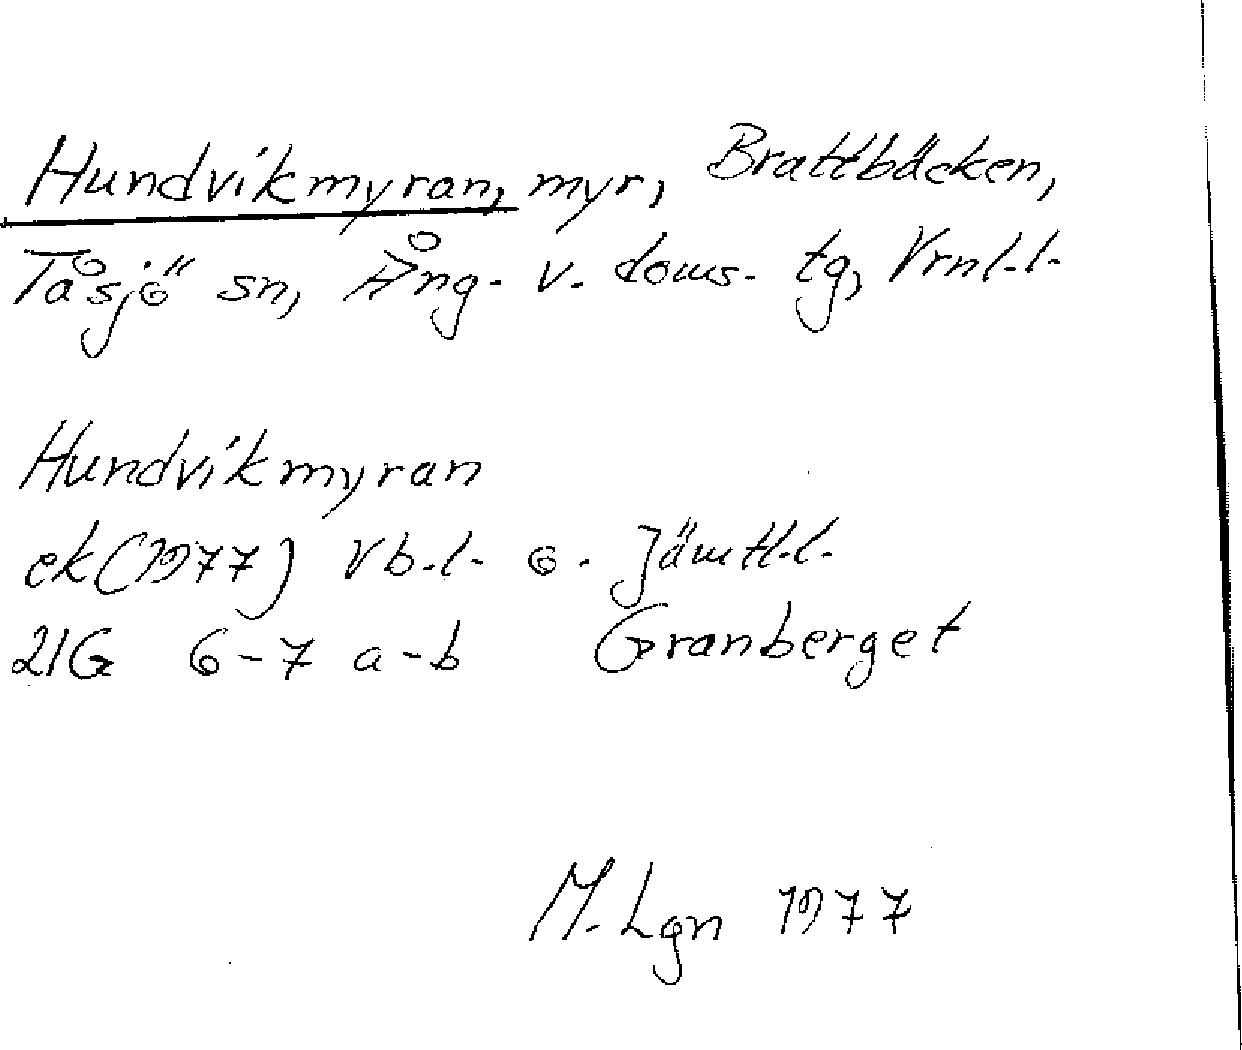 Hundvikmyran, myr, Brattbäcken,
Tåsjö sn, Ång. v. doms. tg, Vrnl.l.
Hundvikmyran
ek (1977) Vb.l. o. Jämtl.l.
21G 6-7 a-b Granberget
M. Lgn 1977